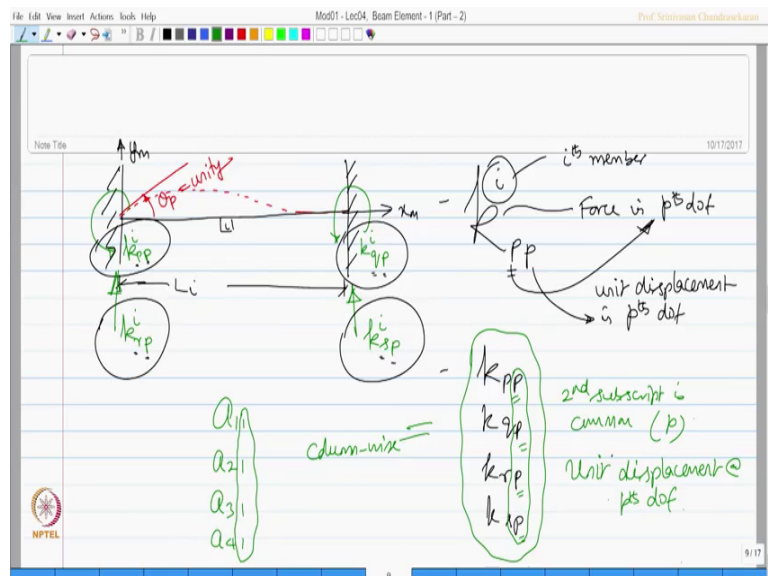 File Edit View Insert Actions Tools Help
Mod01 - Lec04, Beam Element - 1 (Part - 2)
Prof Srinivasan Chandrasekaran
B I
Note Title
10/17/2017
ym
θp ← unity
xm
Li
k^i pp
k^i qp
k^i rp
k^i sp
i
k^i pp
ith member
Force in pth dof
unit displacement
in pth dof
a11
a21
a31
a41
Column-wise =
kpp
kqp
krp
ksp
2nd subscript is
common (p)
Unit displacement @
pth dof
NPTEL
9 / 17